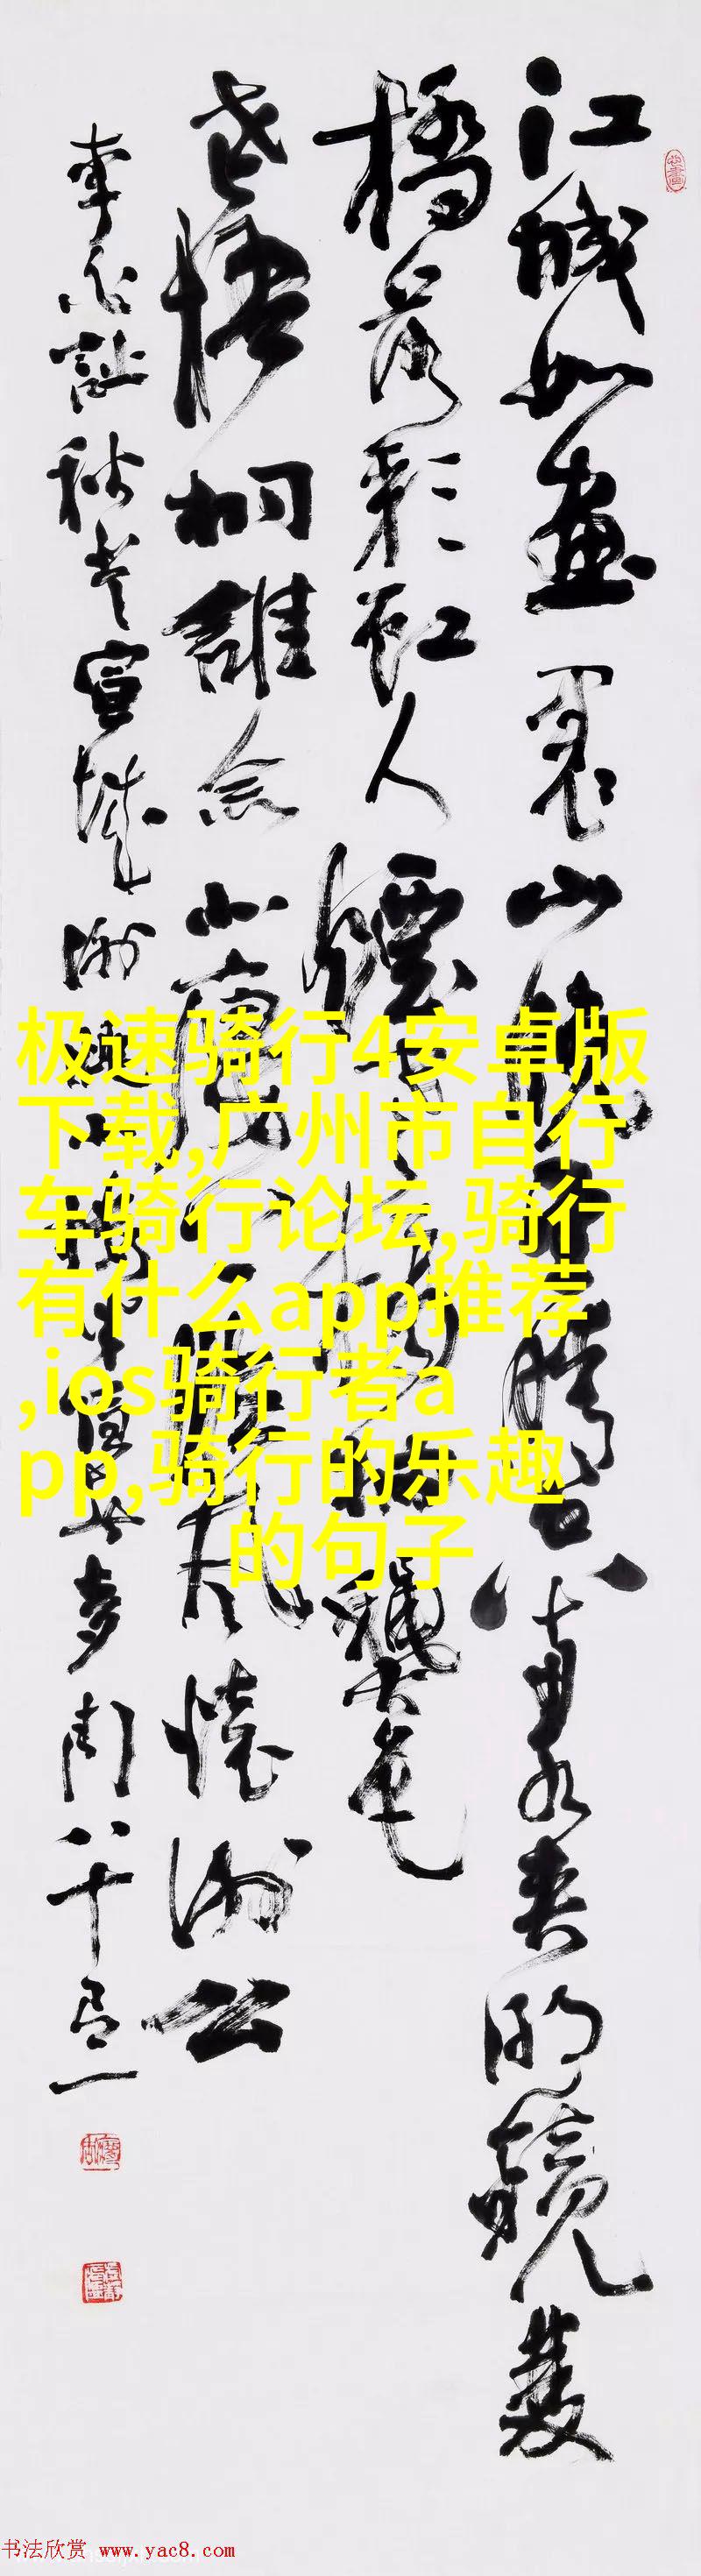 江城如畫裏山晚望晴空兩水夾明鏡雙
橋落彩虹人煙寒橘柚秋色
老梧桐誰念北樓上臨風懷謝公
李白詩秋登宣城謝朓北樓
極速骑行4安卓版
下载,广州市自行
车骑行论坛,骑行
有什么app推荐
,ios骑行者a
pp,骑行的乐趣
的句子
书法欣赏 www.yac8.com